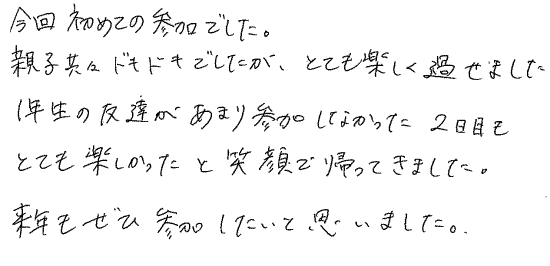 今回初めての参加でした。
親子共々ドキドキでしたが、とても楽しく過せました
1年生の友達があまり参加しなかった2日目も
とても楽しかったと笑顔で帰ってきました。
来年もぜひ参加したいと思いました。